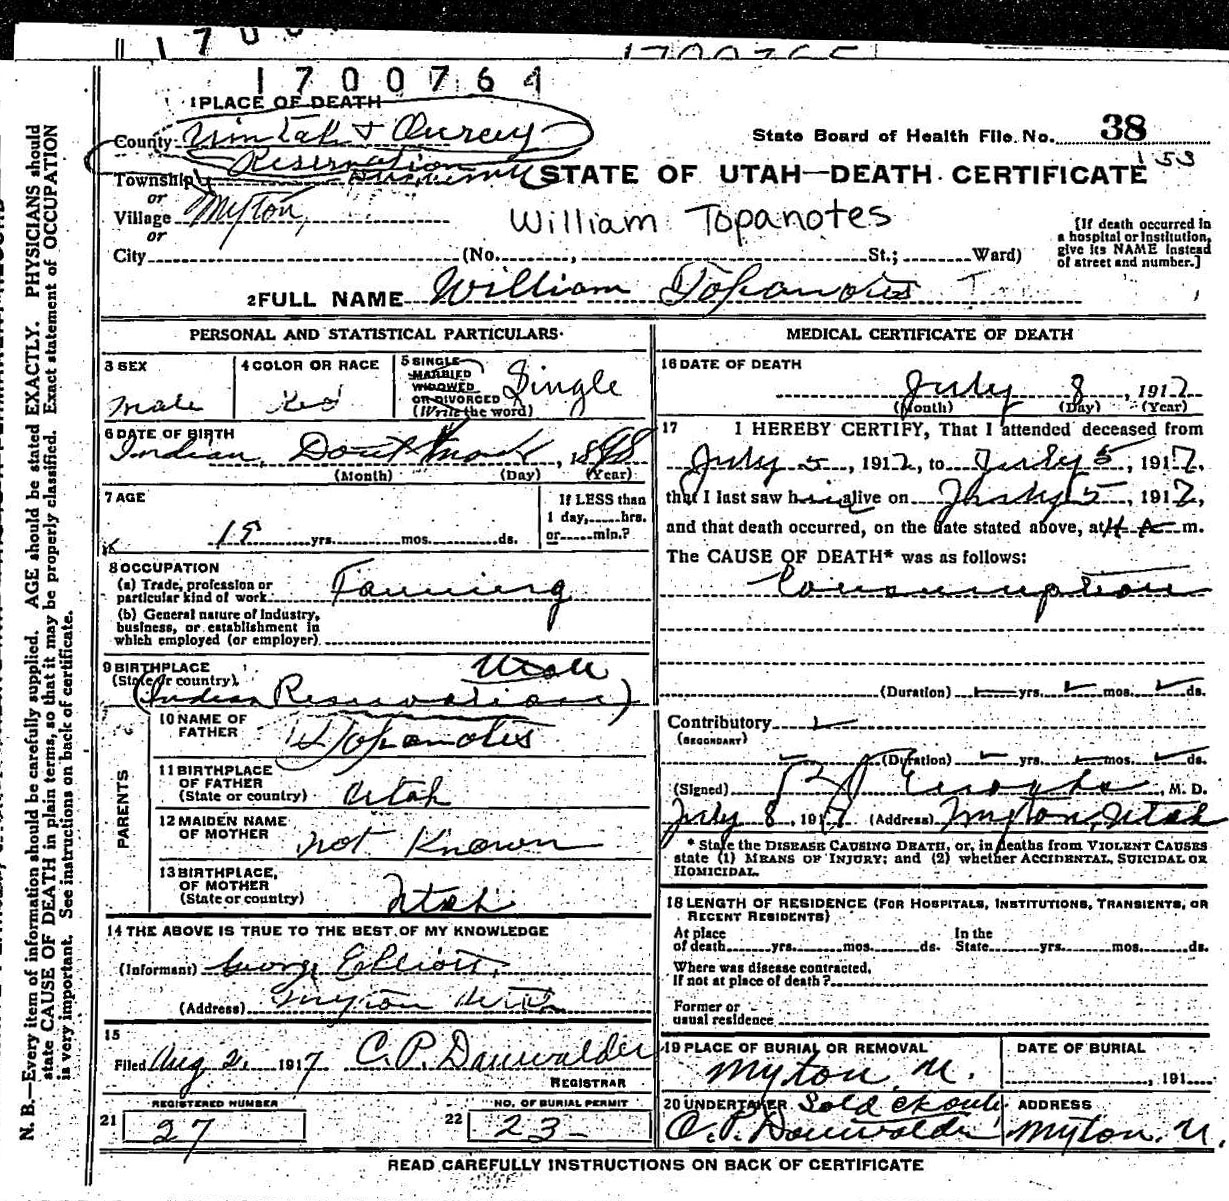 1700
1700765
1700764
1 PLACE OF DEATH
County Uintah & Ouray
Reservation
State Board of Health File. No. 38
153
Township
or
STATE OF UTAH—DEATH CERTIFICATE
Village Myton,
or
William Topanotes
City (No. , St.; Ward)
[If death occurred in
a hospital or institution,
give its NAME instead
of street and number.]
2 FULL NAME William Topanotes
PERSONAL AND STATISTICAL PARTICULARS
3 SEX
male
4 COLOR OR RACE
Red
5 SINGLE
MARRIED
WIDOWED
OR DIVORCED
(Write the word)
Single
6 DATE OF BIRTH
Indian, Dont know, 1898
(Month) (Day) (Year)
7 AGE
19 yrs. mos. ds.
If LESS than
1 day, hrs.
or min.?
8 OCCUPATION
(a) Trade, profession or
particular kind of work.
Farming
(b) General nature of Industry,
business, or establishment in
which employed (or employer)
9 BIRTHPLACE
(State or country)
Utah
(Indian Reservation)
PARENTS
10 NAME OF
FATHER
Topanotes
11 BIRTHPLACE
OF FATHER
(State or country)
Utah
12 MAIDEN NAME
OF MOTHER
not Known
13 BIRTHPLACE,
OF MOTHER
(State or country)
Utah
14 THE ABOVE IS TRUE TO THE BEST OF MY KNOWLEDGE
(Informant) George Elliott,
(Address) Myton Utah
15
Filed Aug 2, 1917 C. P. Danwalder
REGISTRAR
REGISTERED NUMBER
21 27
NO. OF BURIAL PERMIT
22 23-
MEDICAL CERTIFICATE OF DEATH
16 DATE OF DEATH
July 8, 1917
(Month) (Day) (Year)
17 I HEREBY CERTIFY, That I attended deceased from
July 5, 1917, to July 5, 1917,
that I last saw him alive on July 5, 1917,
and that death occurred, on the date stated above, at 4 A m.
The CAUSE OF DEATH* was as follows:
Consumption
(Duration) yrs. mos. ds.
Contributory
(SECONDARY)
(Duration) yrs. mos. ds.
(Signed) M. D.
July 8, 1917 (Address) Myton, Utah
* State the DISEASE CAUSING DEATH, or, in deaths from VIOLENT CAUSES
state (1) MEANS OF INJURY; and (2) whether ACCIDENTAL, SUICIDAL OR
HOMICIDAL.
18 LENGTH OF RESIDENCE (FOR HOSPITALS, INSTITUTIONS, TRANSIENTS, OR
RECENT RESIDENTS)
At place
of death yrs. mos. ds.
In the
State yrs. mos. ds.
Where was disease contracted,
If not at place of death?
Former or
usual residence
19 PLACE OF BURIAL OR REMOVAL
Myton, U.
DATE OF BURIAL
, 191
20 UNDERTAKER Sold
C. P. Danwalder
ADDRESS
Myton, U.
READ CAREFULLY INSTRUCTIONS ON BACK OF CERTIFICATE
N. B.—Every item of information should be carefully supplied. AGE should be stated EXACTLY. PHYSICIANS should
state CAUSE OF DEATH in plain terms, so that it may be properly classified. Exact statement of OCCUPATION
is very important. See instructions on back of certificate.